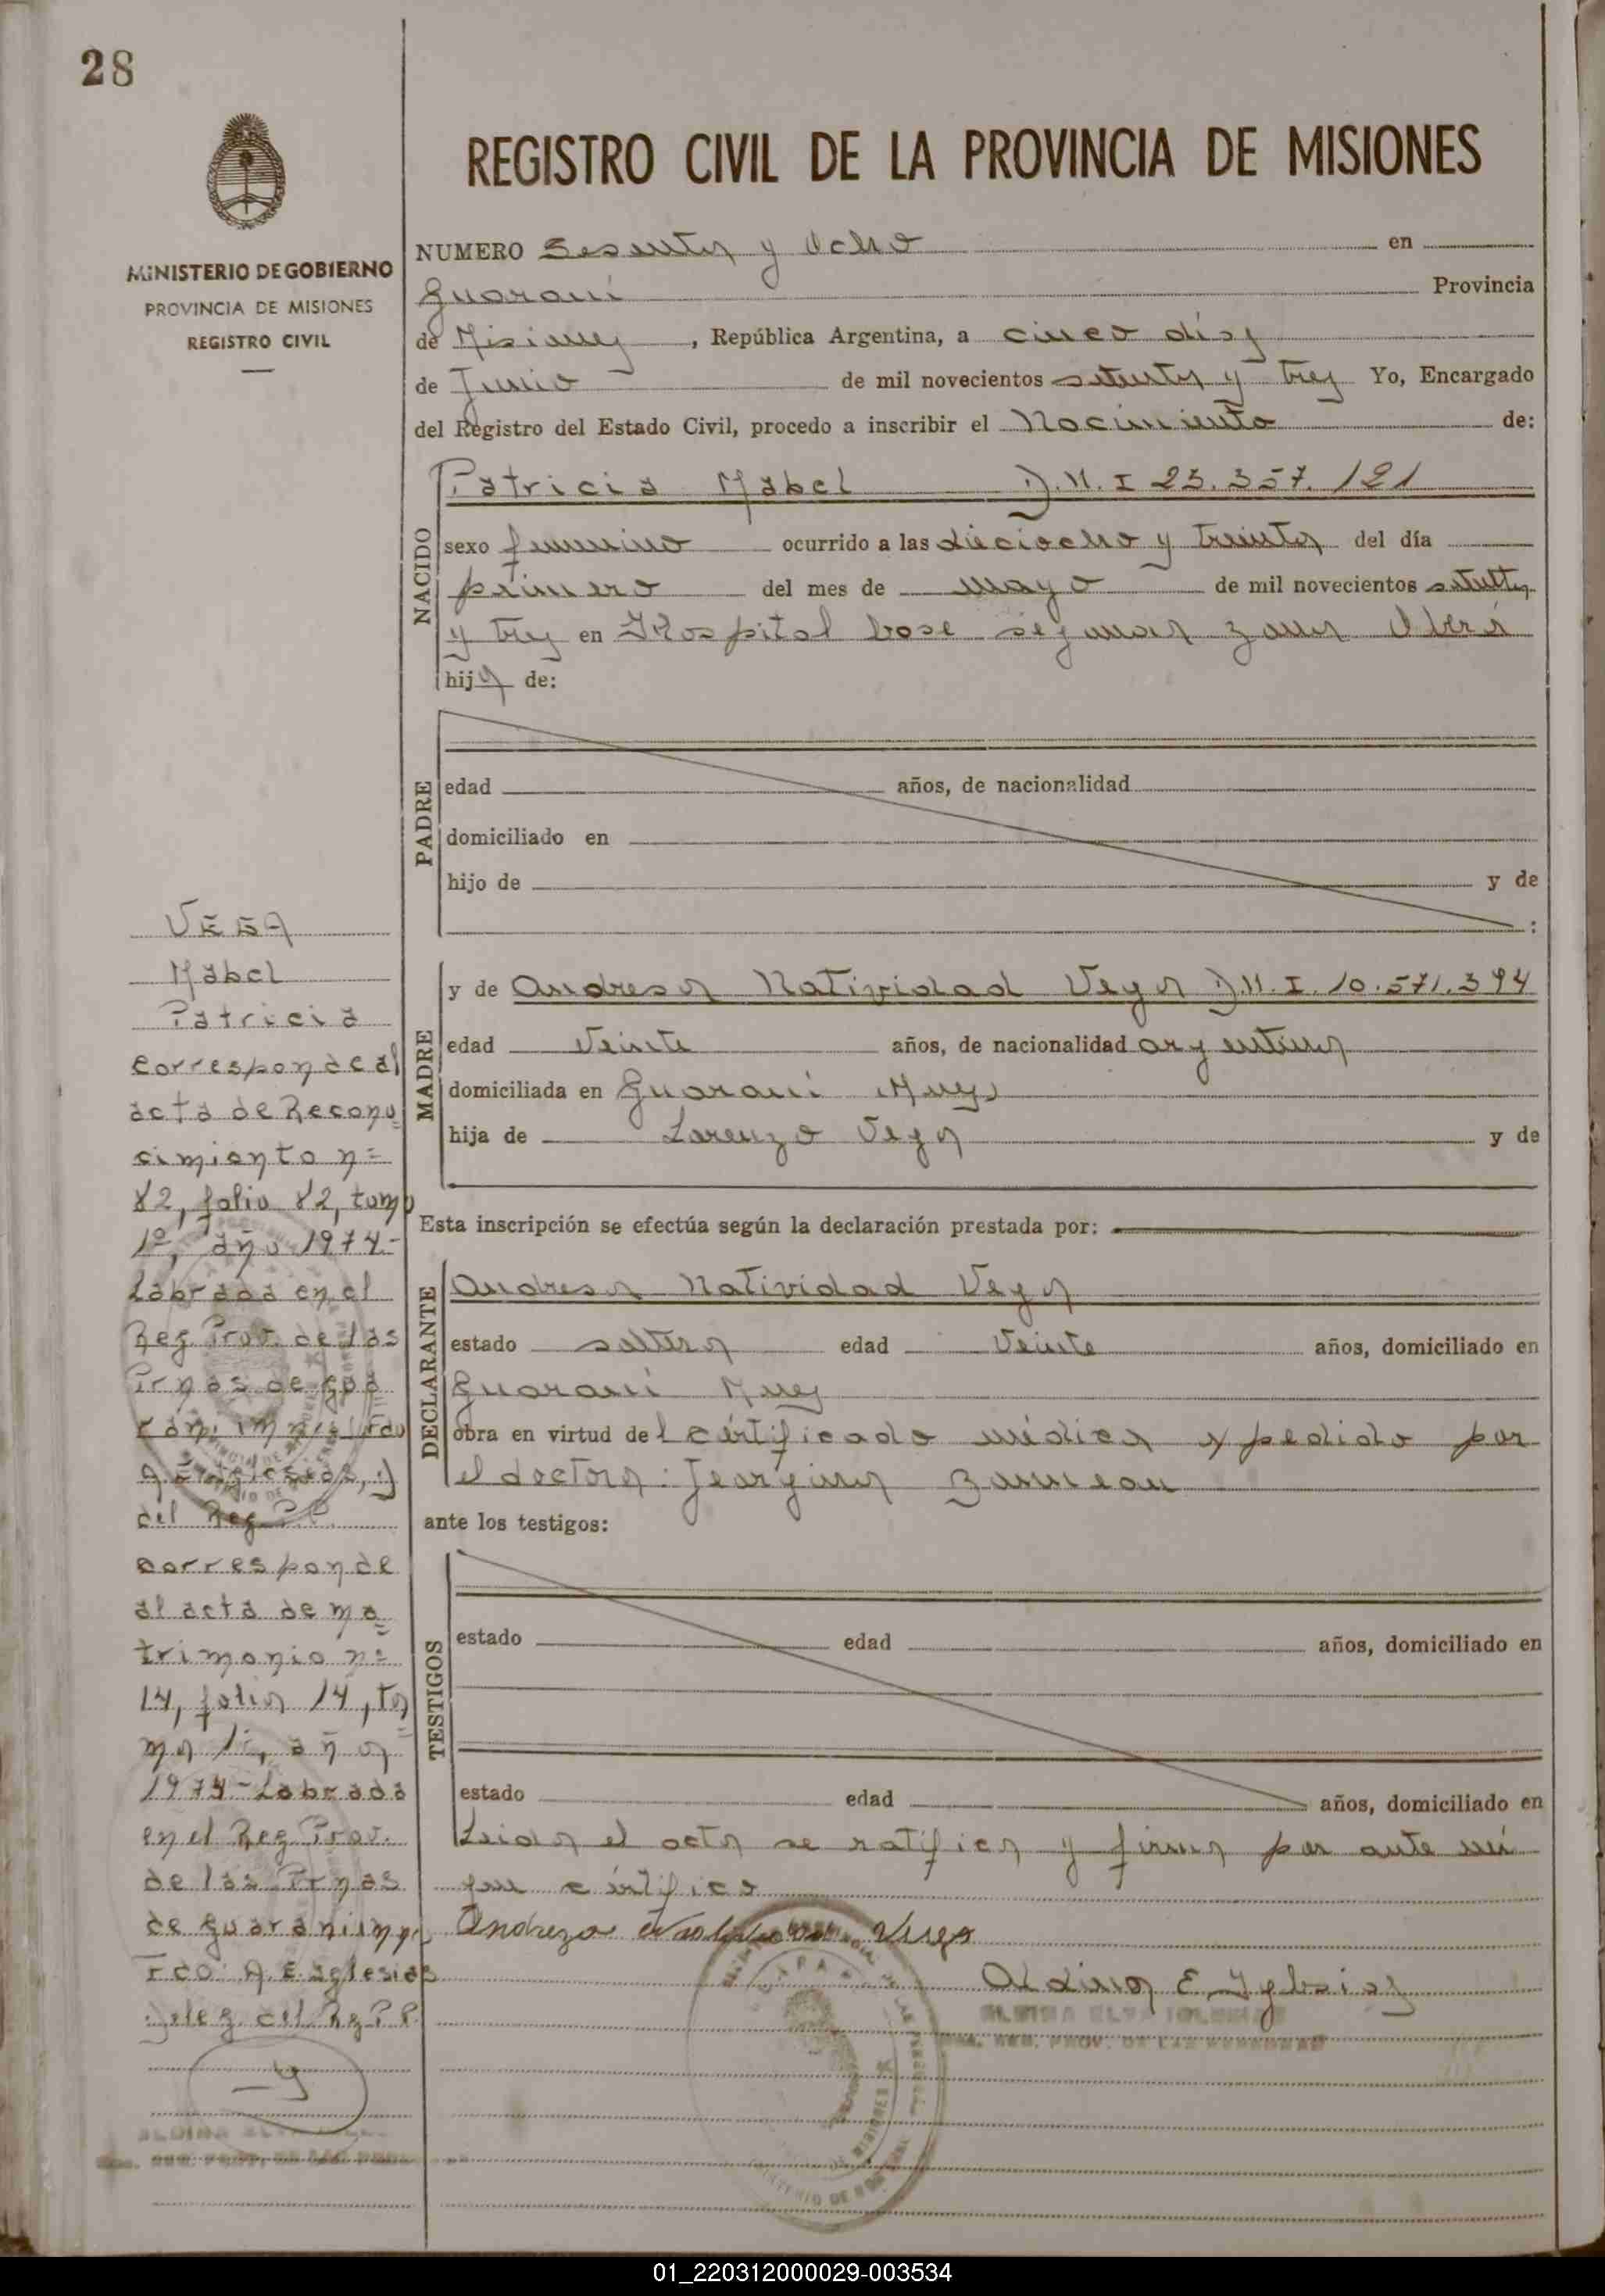 28
MINISTERIO DE GOBIERNO
PROVINCIA DE MISIONES
REGISTRO CIVIL
REGISTRO CIVIL DE LA PROVINCIA DE MISIONES
NUMERO Sesenta y Ocho en
Guaraní Provincia
de Misiones, República Argentina, a cinco días
de Junio de mil novecientos setenta y tres Yo, Encargado
del Registro del Estado Civil, procedo a inscribir el Nacimiento de:
NACIDO
Patricia Mabel D.N.I 23.357.121
sexo femenino ocurrido a las dieciocho y treinta del día
primero del mes de mayo de mil novecientos setenta
y tres en Hospital base segunda zona Oberá
hija de:
PADRE
edad años, de nacionalidad
domiciliado en
hijo de y de
:
MADRE
y de Andresa Natividad Vega D.N.I. 10.571.394
edad Veinte años, de nacionalidad argentina
domiciliada en Guaraní Mnes
hija de Lorenzo Vega y de
Esta inscripción se efectúa según la declaración prestada por:
DECLARANTE
Andresa Natividad Vega
estado soltera edad Veinte años, domiciliado en
Guaraní Mnes
obra en virtud del certificado médico expedido por
el doctora: Georgina
ante los testigos:
TESTIGOS
estado edad años, domiciliado en
estado edad años, domiciliado en
Leida el acta se ratifica y firma por ante mí
que certifico
Andreza Natividad Vega
Aldina E. Iglesias
ALDINA ELVA IGLESIAS
REG. PROV. DE LAS PERSONAS
VEGA
Mabel
Patricia
corresponde al
acta de Recono
cimiento nº
82, folio 82, tomo
1º, año 1974-
Labrada en el
Reg. Prov. de las
Prnas de gua
raní mnes Fdo
A. E. Iglesias, J
del Reg. P.P.
corresponde
al acta de ma
trimonio nº
14, folio 14, to
mo 1º, año
1974- Labrada
en el Reg. Prov.
de las Prnas
de guaraní mn
Fdo: A. E. Iglesias
Deleg. del Rg P.P.
01_220312000029-003534